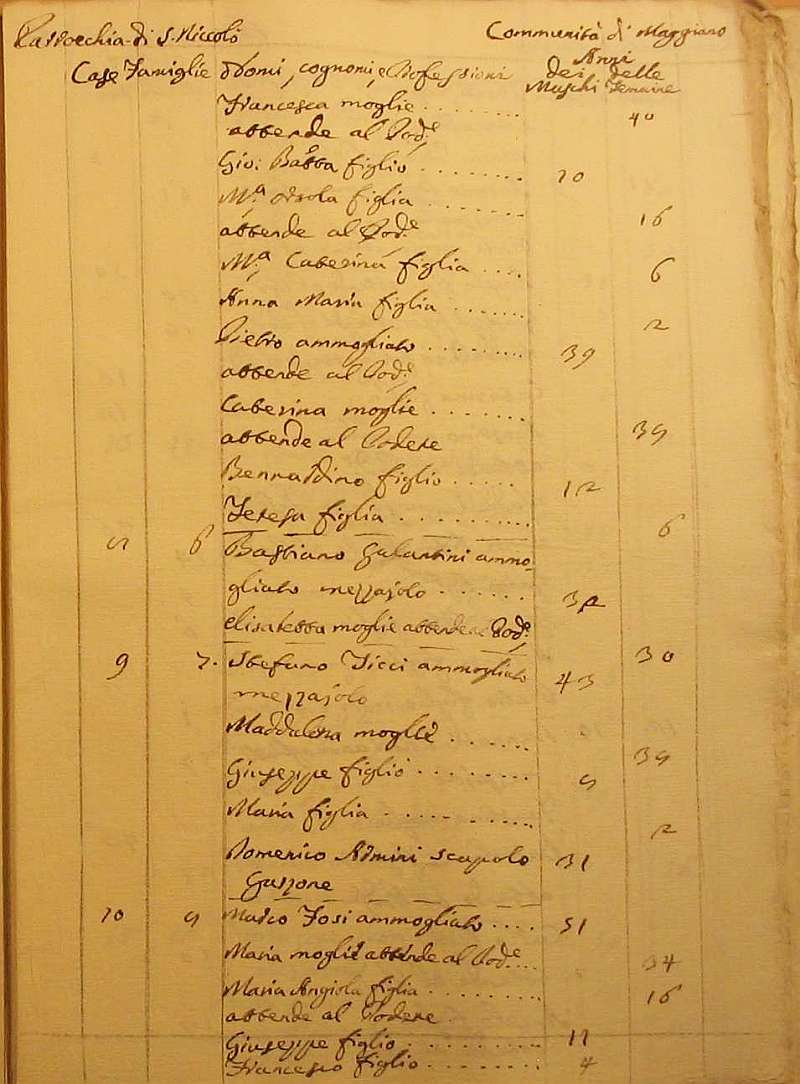 Parrocchia di S. Niccolò Communità di Maggiano
Case Famiglie Nomi, cognomi, e Professioni Anni dei Maschi delle Femine
Francesca moglie ........ 40
attende al Pod.e
Gio: Batta figlio ........ 10
M.a Orsola figlia ........ 16
attende al Pod.e
M.a Caterina figlia .... 6
Anna Maria figlia ....... 2
Pietro ammogliato ......... 39
attende al Pod.e
Caterina moglie ........ 39
attende al Podere
Bernardino figlio ..... 12
Teresa figlia .......... 6
6 Bastiano Galantini ammo-
gliato mezzajolo ....... 32
elisabetta moglie attende al Pod.e 30
9 7. Stefano Ticci ammogliato 43
mezzajolo
Maddalena moglie ...... 39
Giuseppe figlio ........ 9
Maria figlia .......... 2
Domenico scapolo 31
Garzone
10 9 Marco Fosi ammogliato .... 51
Maria moglie attende al Pod.e .... 34
Maria Angiola figlia ......... 16
attende al Podere
Giuseppe figlio .......... 11
Francesco figlio ......... 4